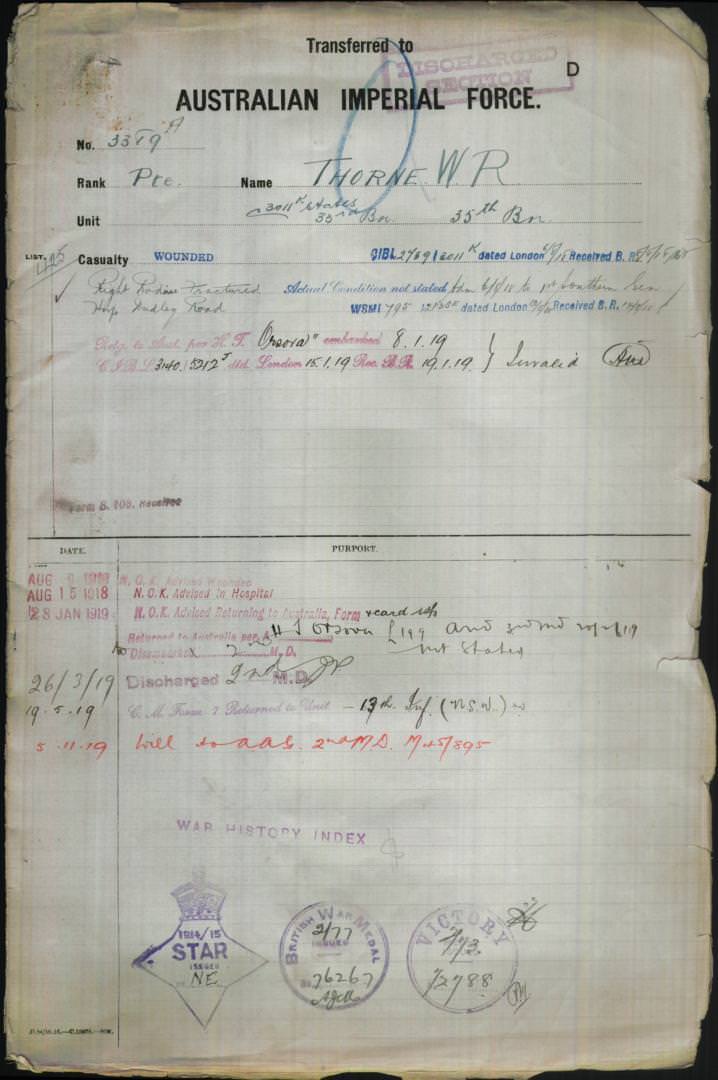 Transferred to
DISCHARGED
SECTION
D
AUSTRALIAN IMPERIAL FORCE.
No. 33 9 A
Rank Pte. Name THORNE W. R
3011K States
Unit 33rd Bn. 35th Bn.
LIST.
495
Casualty WOUNDED CIBL 2769/3011 K dated London Received B. R.
Right Radius Fractured Actual Condition not stated 6/8/18 to 1st Southern Gen
Hosp Dudley Road WSMI 795 dated London Received B. R.
Retg. to Aust. per H. T. "Orsova" embarked 8.1.19
C.I.B.L. 3140/5212 J dtd. London 15.1.19 Rec. B.R. 19.1.19 } Invalid Aus
Form B. 103. Received
DATE. PURPORT.
AUG 1918 N. O. K. Advised Wounded
AUG 15 1918 N. O. K. Advised in Hospital
28 JAN 1919 N. O. K. Advised Returning to Australia, Form & card
Returned to Australia per H T Orsova and
Disembarked 2nd M. D. not Stated
26/3/19 Discharged 2nd M.D.
19.5.19 C. M. Form 7 Returned to Unit - 13th. Inf. (N.S.W.)
5.11.19 Will to A.A.G. 2nd M.D. M45/895
WAR HISTORY INDEX
1914/15
STAR
ISSUED
NE
BRITISH WAR MEDAL
2/77
ISSUED
No 76267
VICTORY
2/73
72788